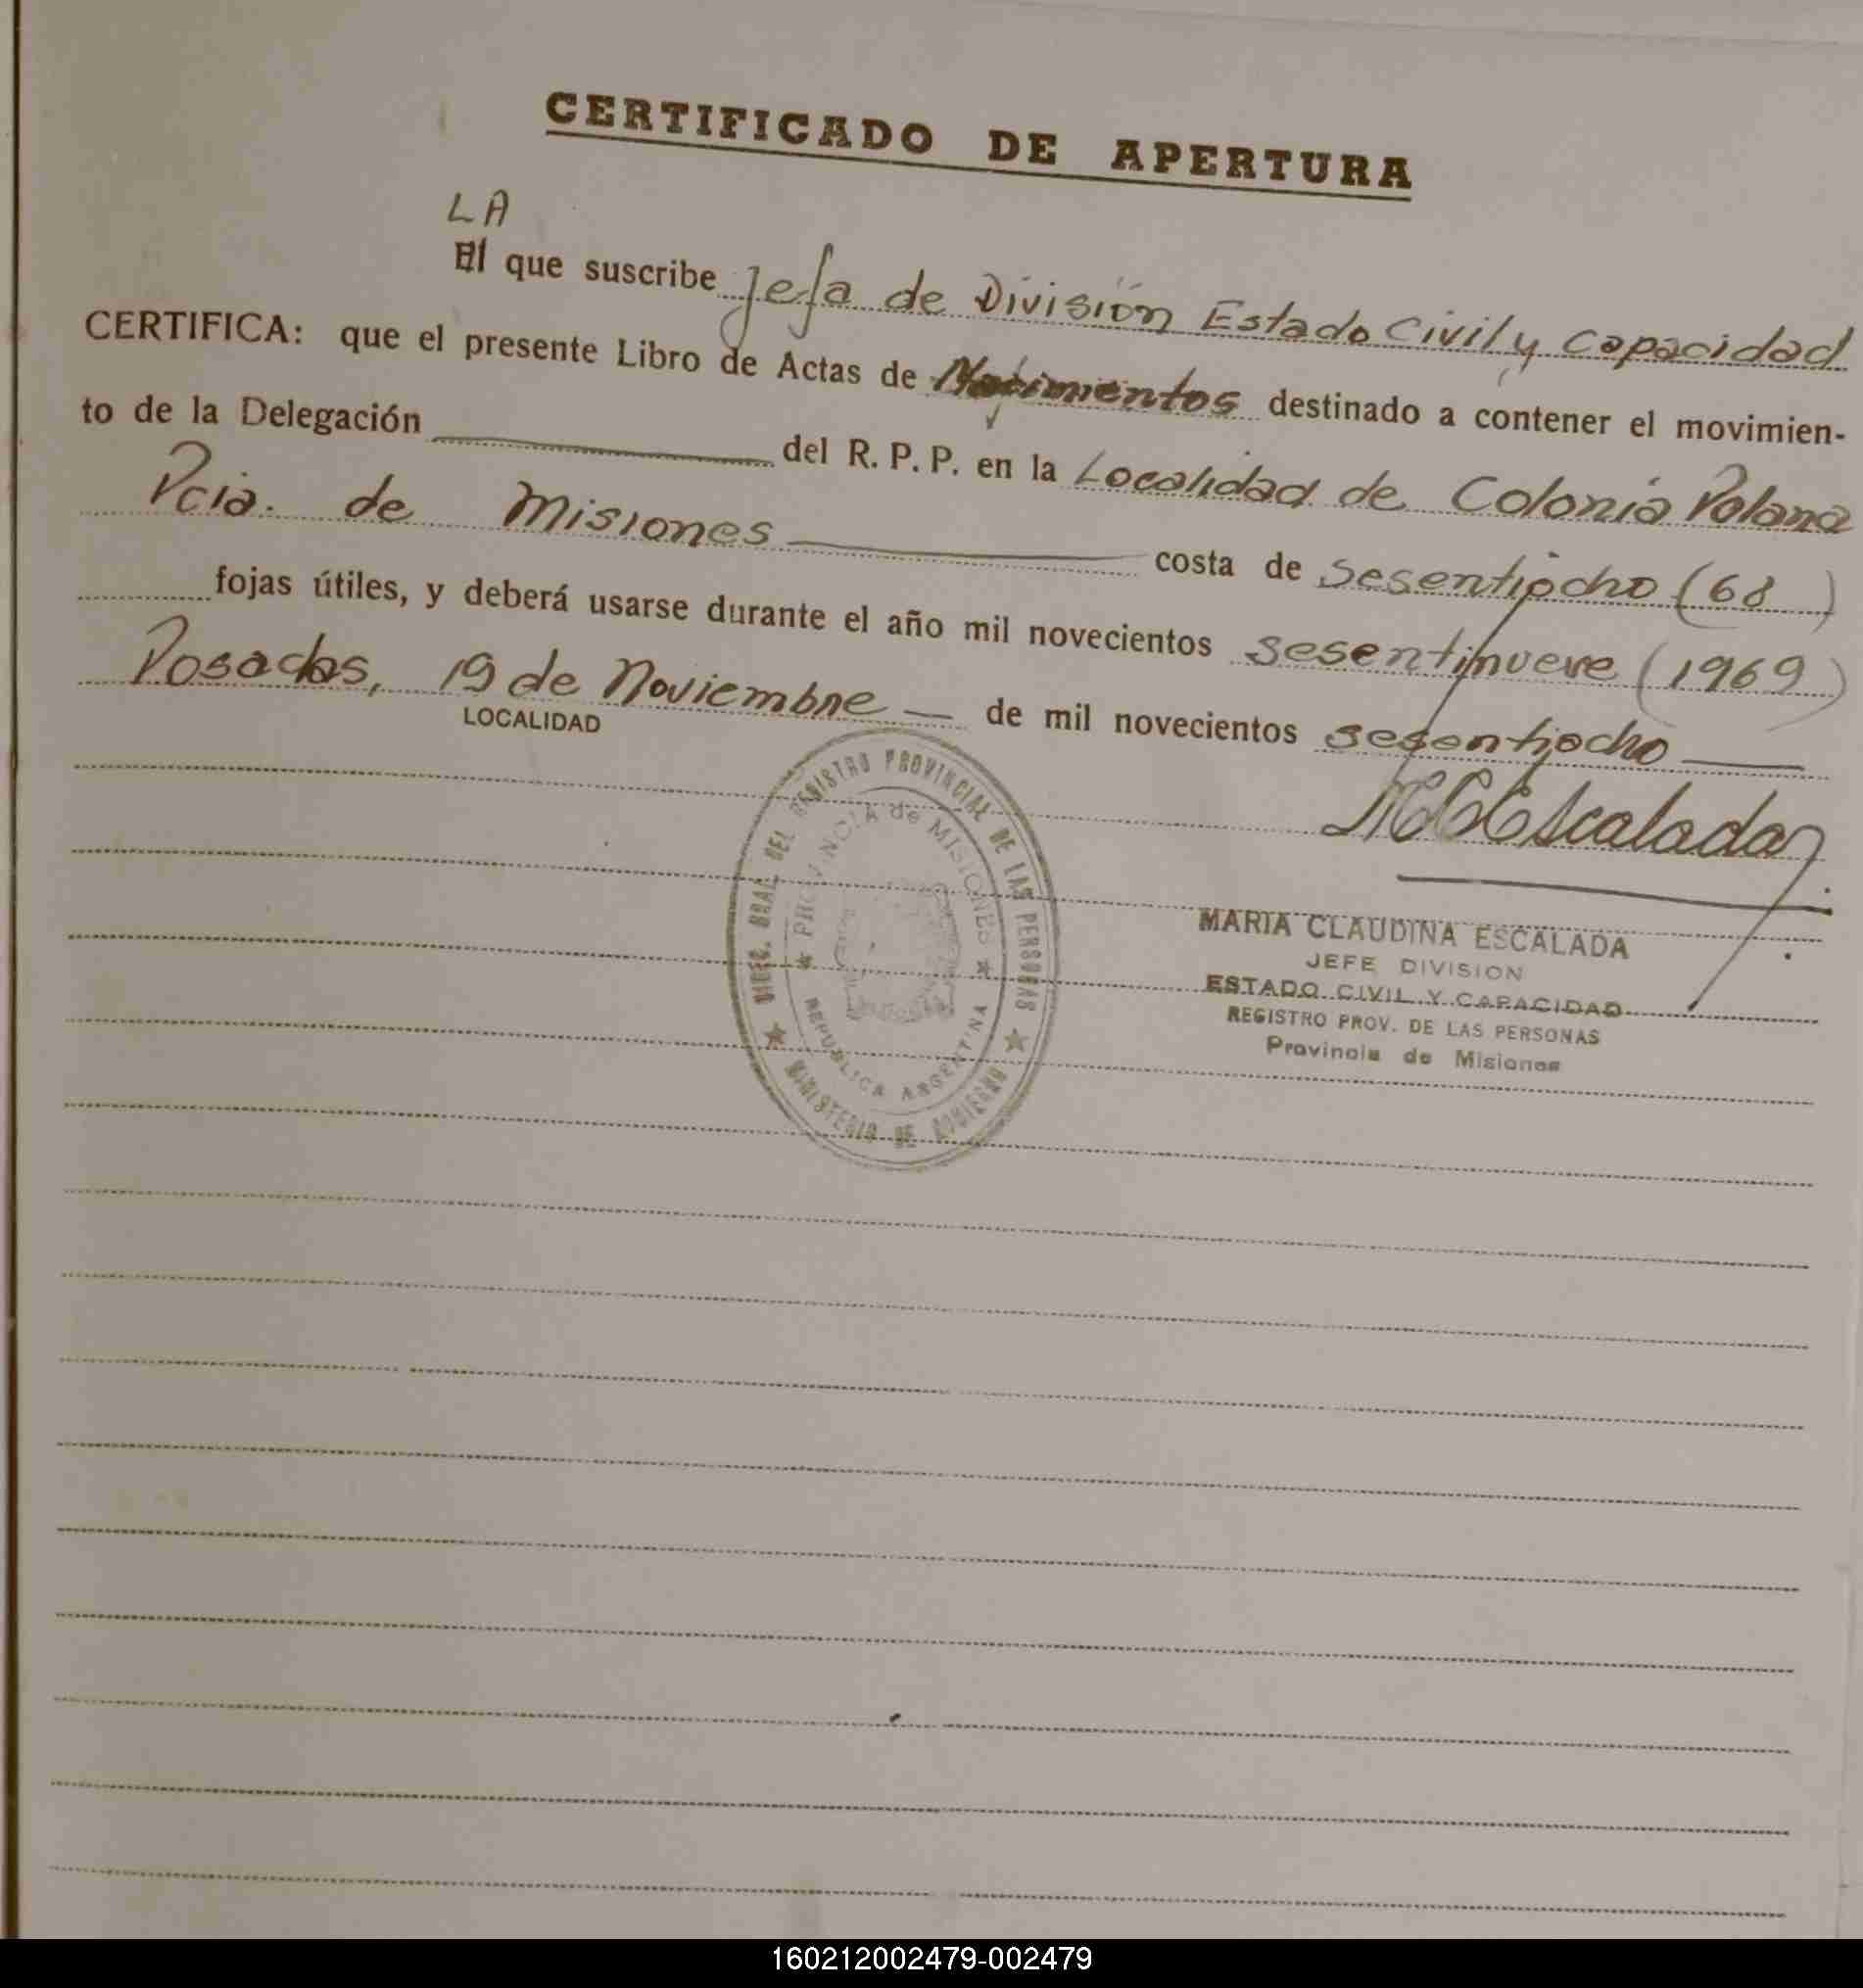 CERTIFICADO DE APERTURA
LA
El que suscribe Jefa de División Estado Civil y Capacidad
CERTIFICA: que el presente Libro de Actas de Nacimientos destinado a contener el movimien-
to de la Delegación del R. P. P. en la Localidad de Colonia Polana
Pcia. de Misiones costa de sesentiocho (68)
fojas útiles, y deberá usarse durante el año mil novecientos sesentinueve (1969)
Posadas, 19 de Noviembre — de mil novecientos sesentiocho
LOCALIDAD
MCEscalada
DIREC. GRAL. DEL REGISTRO PROVINCIAL DE LAS PERSONAS
PROVINCIA de MISIONES
REPUBLICA ARGENTINA
MINISTERIO DE GOBIERNO
MARIA CLAUDINA ESCALADA
JEFE DIVISION
ESTADO CIVIL Y CAPACIDAD
REGISTRO PROV. DE LAS PERSONAS
Provincia de Misiones
160212002479-002479